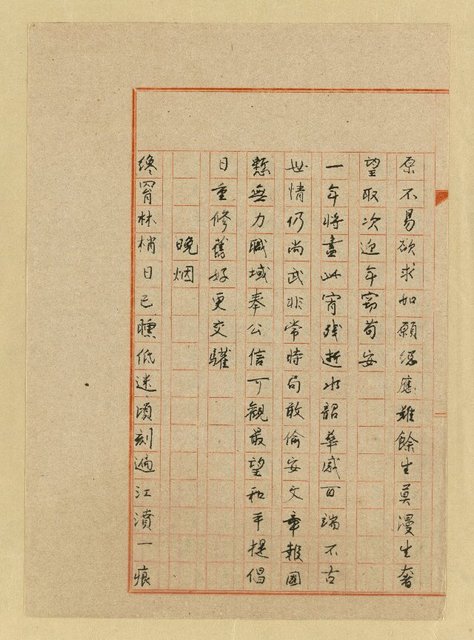 原不易欲求如願縂應難餘生莫漫生奢
望取次迎年窃苟安
一年将盡此宵残逝水韶華感百端不古
世情仍尚武非常時局敢偷安文章報國
慙無力職域奉公信可觀最望和平提倡
日重修舊好更交驩
晚烟
終宵林梢日已曛低迷頃刻遍江濆一痕